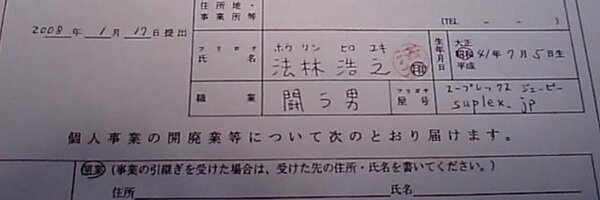 住所地・
事業所等
(TEL - - )
2008年 1月 17日提出
フリガナ ホウリン ヒロユキ
氏名 法林浩之 印
生年月日 大正 昭和 平成 41年7月5日生
職業 闘う男
フリガナ スープレックス ジェーピー
屋号 suplex.jp
個人事業の開廃業等について次のとおり届けます。
開業 (事業の引継ぎを受けた場合は、受けた先の住所・氏名を書いてください。)
住所 氏名